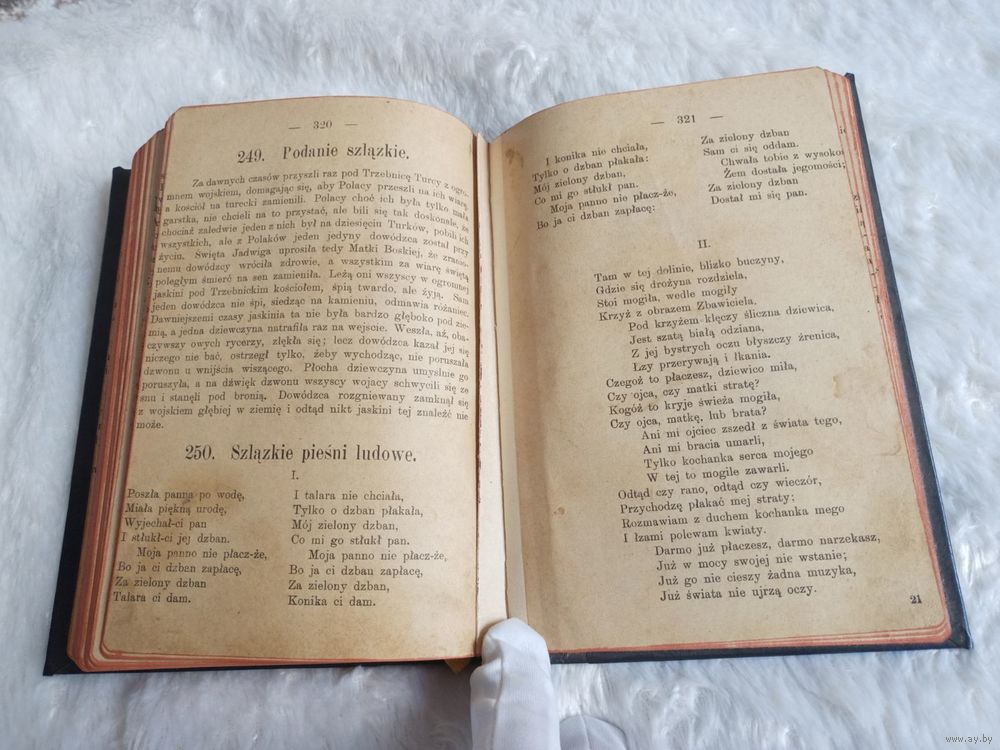 — 320 —
249. Podanie szlązkie.
Za dawnych czasów przyszli raz pod Trzebnicę Turcy z ogro-
mnem wojskiem, domagając się, aby Polacy przeszli na ich wiarę,
a kościół na turecki zamienili. Polacy choć ich była tylko mała
garstka, nie chcieli na to przystać, ale bili się tak doskonale, że
chociaż zaledwie jeden z nich był na dziesięciu Turków, pobili ich
wszystkich, ale z Polaków jeden jedyny dowódzca został przy
życiu. Święta Jadwiga uprosiła tedy Matki Boskiej, że zranio-
nemu dowódzcy wróciła zdrowie, a wszystkim za wiarę świętą
poległym śmierć na sen zamieniła. Leżą oni wszyscy w ogromnej
jaskini pod Trzebnickim kościołem, śpią twardo, ale żyją. Sam
jeden dowódzca nie śpi, siedząc na kamieniu, odmawia różaniec.
Dawniejszemi czasy jaskinia ta nie była bardzo głęboko pod zie-
mią, a jedna dziewczyna natrafiła raz na wejście. Weszła, aż, oba-
czywszy owych rycerzy, zlękła się; lecz dowódzca kazał jej się
niczego nie bać, ostrzegł tylko, żeby wychodząc, nie poruszała
dzwonu u wnijścia wiszącego. Płocha dziewczyna umyślnie go
poruszyła, a na dźwięk dzwonu wszyscy wojacy schwycili się ze
snu i stanęli pod bronią. Dowódzca rozgniewany zamknął się
z wojskiem głębiej w ziemię i odtąd nikt jaskini tej znaleźć nie
może.
250. Szlązkie pieśni ludowe.
I.
Poszła panna po wodę,
Miała piękną urodę,
Wyjechał-ci pan
I stłukł-ci jej dzban.
Moja panno nie płacz-że,
Bo ja ci dzban zapłacę,
Za zielony dzban
Talara ci dam.
I talara nie chciała,
Tylko o dzban płakała,
Mój zielony dzban,
Co mi go stłukł pan.
Moja panno nie płacz-że,
Bo ja ci dzban zapłacę,
Za zielony dzban,
Konika ci dam.
— 321 —
I konika nie chciała,
Tylko o dzban płakała:
Mój zielony dzban,
Co mi go stłukł pan.
Moja panno nie płacz-że,
Bo ja ci dzban zapłacę:
Za zielony dzban
Sam ci się oddam.
Chwała tobie z wysoko
Żem dostała jegomości;
Za zielony dzban
Dostał mi się pan.
II.
Tam w tej dolinie, blizko buczyny,
Gdzie się drożyna rozdziela,
Stoi mogiła, wedle mogiły
Krzyż z obrazem Zbawiciela.
Pod krzyżem klęczy śliczna dziewica,
Jest szatą białą odziana,
Z jej bystrych oczu błyszczy źrenica,
Łzy przerywają i łkania.
Czegoż to płaczesz, dziewico miła,
Czy ojca, czy matki stratę?
Kogóż to kryje świeża mogiła,
Czy ojca, matkę, lub brata?
Ani mi ojciec zszedł z świata tego,
Ani mi bracia umarli,
Tylko kochanka serca mojego
W tej to mogile zawarli.
Odtąd czy rano, odtąd czy wieczór,
Przychodzę płakać mej straty;
Rozmawiam z duchem kochanka mego
I łzami polewam kwiaty.
Darmo już płaczesz, darmo narzekasz,
Już w mocy swojej nie wstanie;
Już go nie cieszy żadna muzyka,
Już świata nie ujrzą oczy.
21
www.ay.by